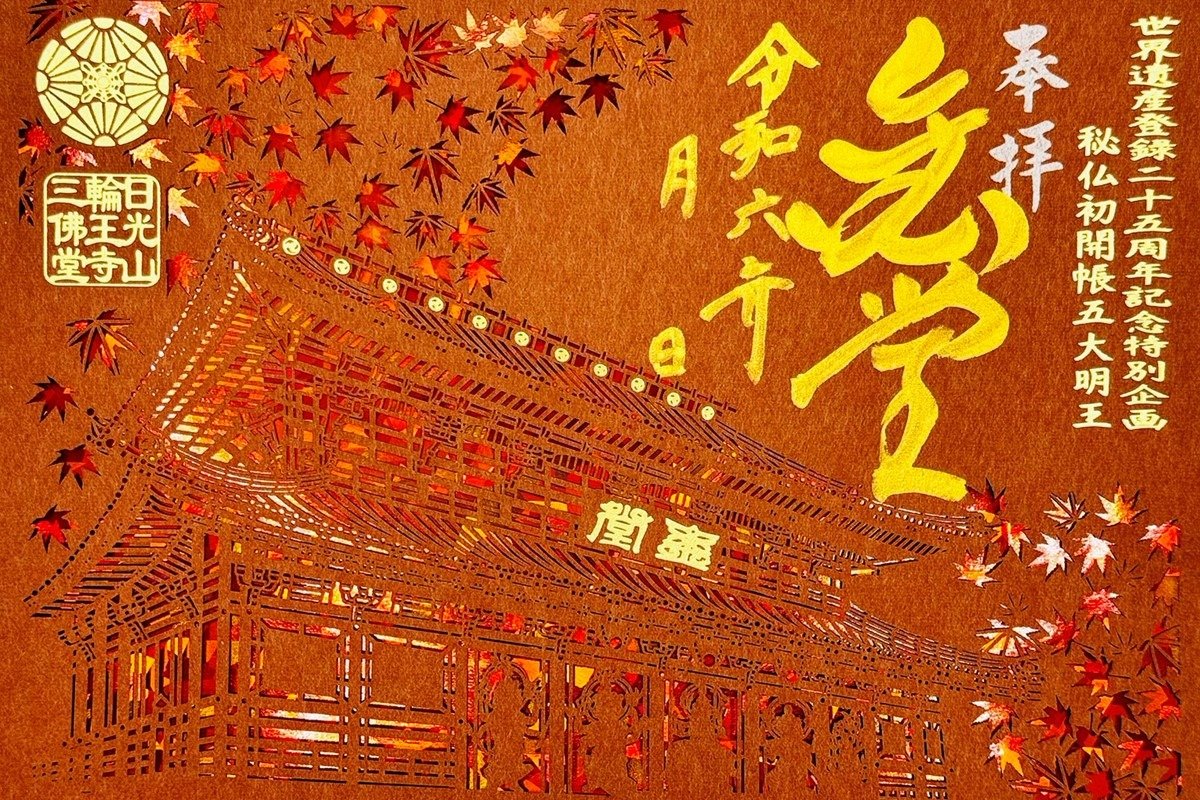 世界遺産登録二十五周年記念特別企画
秘仏初開帳五大明王
奉拝
金堂
令和六年
月　日
日光山
輪王寺
三佛堂
金堂